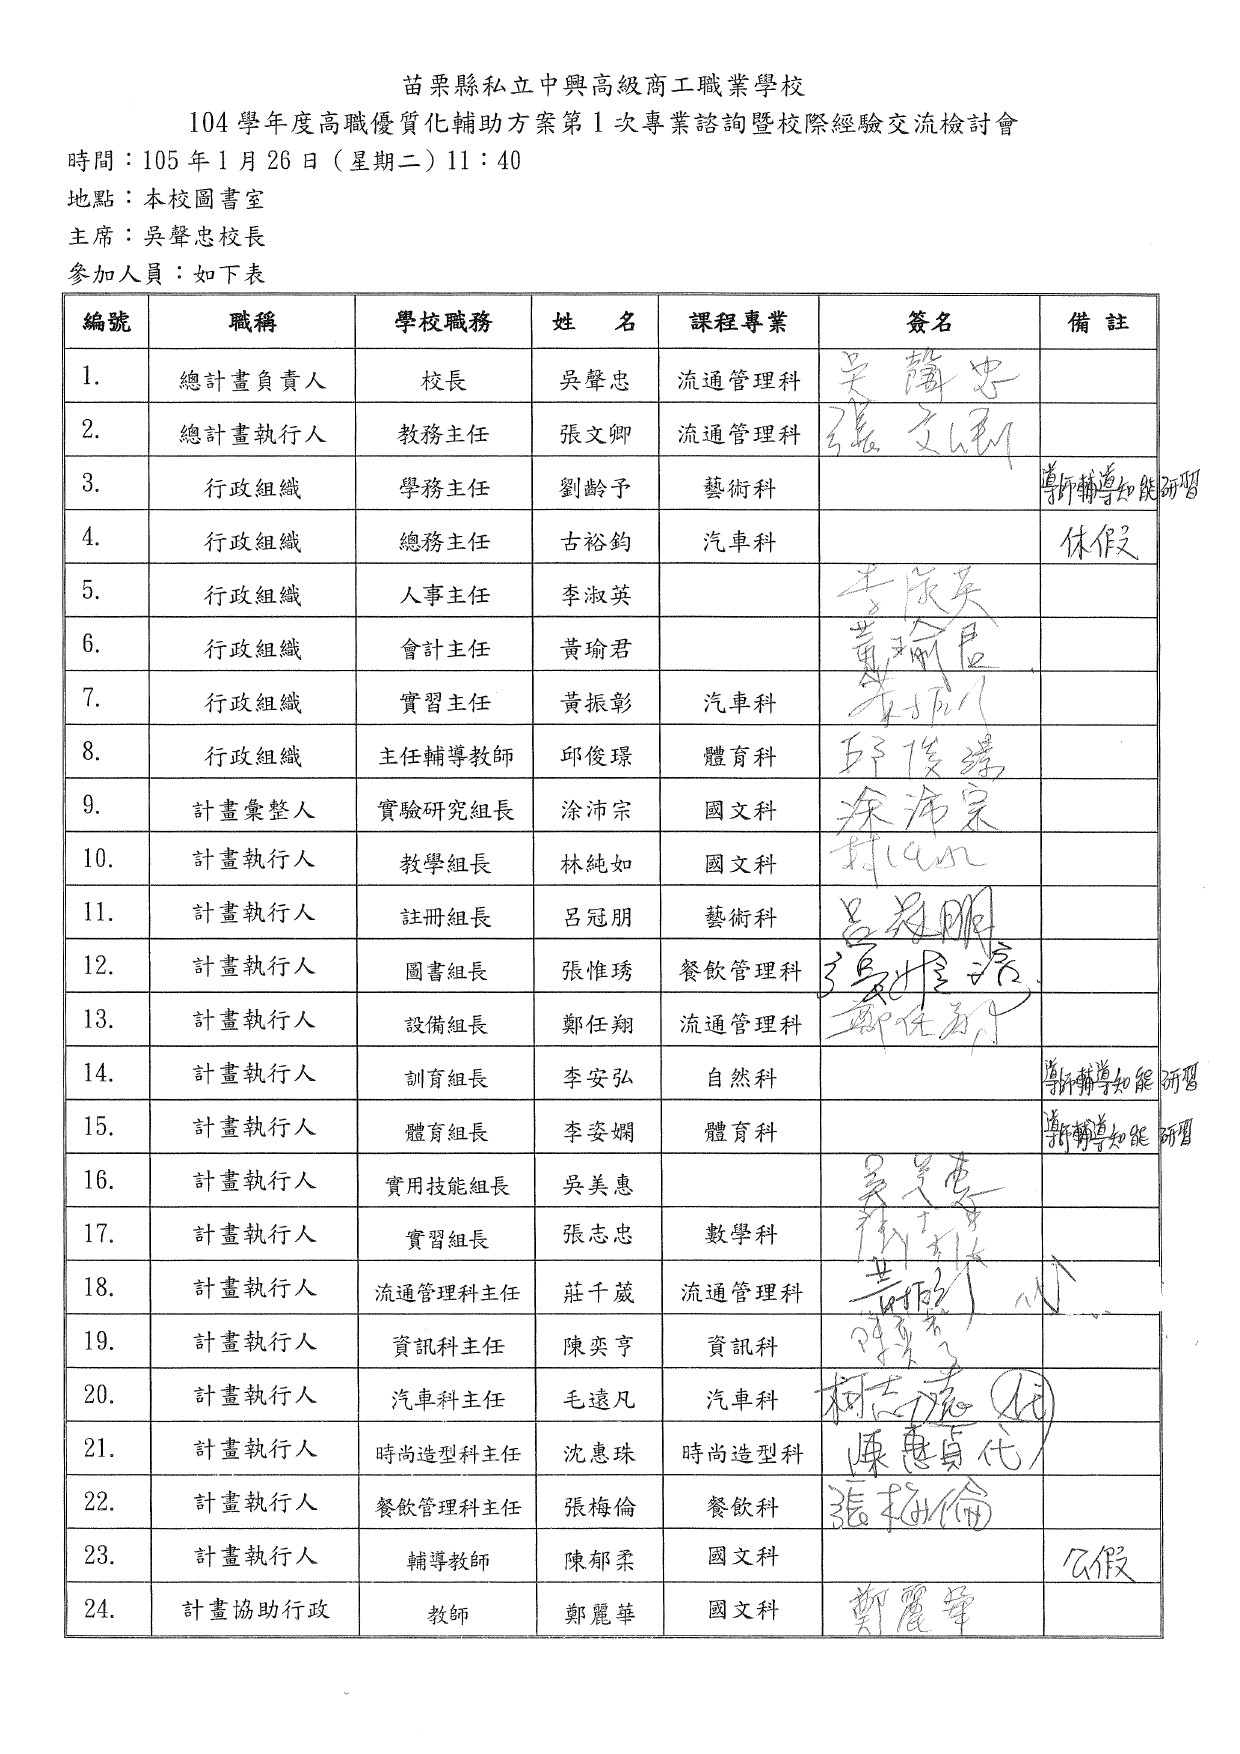 苗栗縣私立中興高級商工職業學校
104 學年度高職優質化輔助方案第 1 次專業諮詢暨校際經驗交流檢討會
時間：105 年 1 月 26 日（星期二）11：40
地點：本校圖書室
主席：吳聲忠校長
參加人員：如下表
編號 職稱 學校職務 姓 名 課程專業 簽名 備 註
1. 總計畫負責人 校長 吳聲忠 流通管理科 吳聲忠
2. 總計畫執行人 教務主任 張文卿 流通管理科 張文卿
3. 行政組織 學務主任 劉齡予 藝術科 導師輔導知能研習
4. 行政組織 總務主任 古裕鈞 汽車科 休假
5. 行政組織 人事主任 李淑英 李淑英
6. 行政組織 會計主任 黃瑜君 黃瑜君
7. 行政組織 實習主任 黃振彰 汽車科
8. 行政組織 主任輔導教師 邱俊璟 體育科 邱俊璟
9. 計畫彙整人 實驗研究組長 涂沛宗 國文科 涂沛宗
10. 計畫執行人 教學組長 林純如 國文科 林純如
11. 計畫執行人 註冊組長 呂冠朋 藝術科 呂冠朋
12. 計畫執行人 圖書組長 張惟琇 餐飲管理科
13. 計畫執行人 設備組長 鄭任翔 流通管理科 鄭任翔
14. 計畫執行人 訓育組長 李安弘 自然科 導師輔導知能研習
15. 計畫執行人 體育組長 李姿嫻 體育科 導師輔導知能研習
16. 計畫執行人 實用技能組長 吳美惠 吳美惠
17. 計畫執行人 實習組長 張志忠 數學科
18. 計畫執行人 流通管理科主任 莊千葳 流通管理科
19. 計畫執行人 資訊科主任 陳奕亨 資訊科
20. 計畫執行人 汽車科主任 毛遠凡 汽車科 柯志遠 代
21. 計畫執行人 時尚造型科主任 沈惠珠 時尚造型科 陳惠貞代
22. 計畫執行人 餐飲管理科主任 張梅倫 餐飲科 張梅倫
23. 計畫執行人 輔導教師 陳郁柔 國文科 公假
24. 計畫協助行政 教師 鄭麗華 國文科 鄭麗華